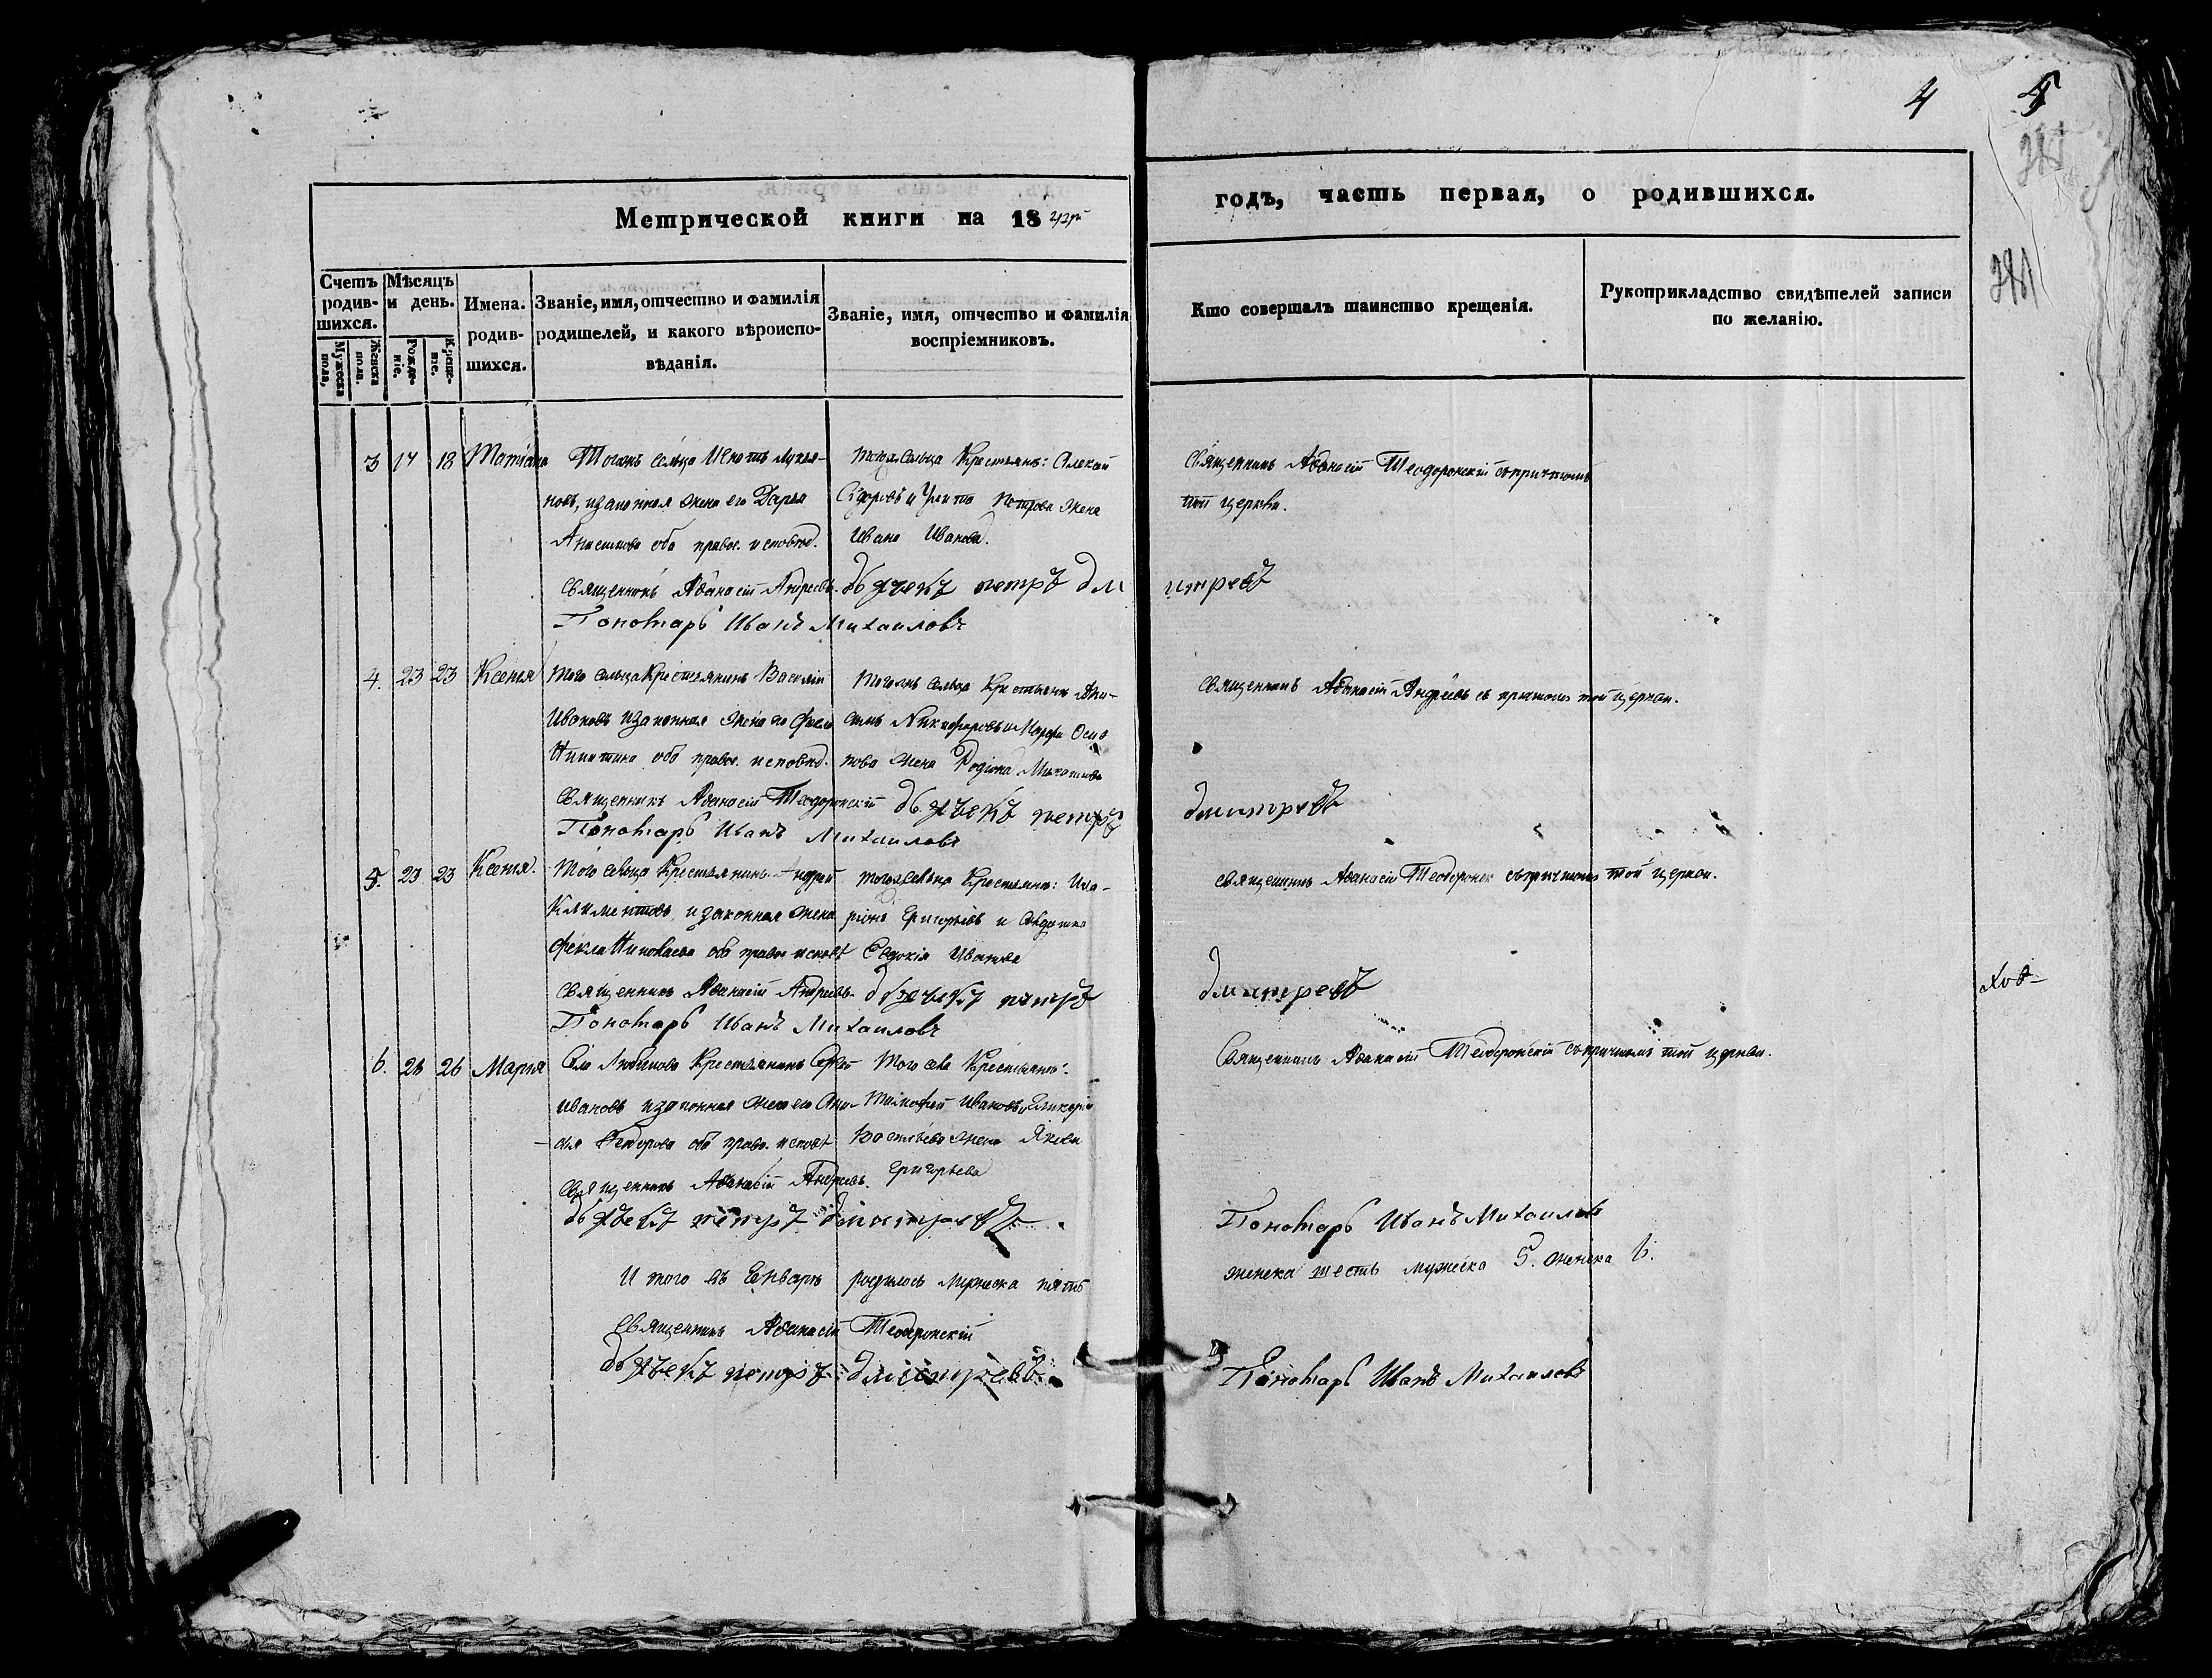 4 5
Метрической книги на 18
годъ, часть первая, о родившихся.
Счетъ родившихся.
Мужеска пола,
Женска пола.
Мѣсяцъ и день.
Рожденіе.
Крещеніе.
Имена родившихся.
Званіе, имя, отчество и фамилія
родителей, и какого вѣроиспо-
вѣданія.
Званіе, имя, отчество и фамилія
воспріемниковъ.
Кто совершалъ таинство крещенія.
Рукоприкладство свидѣтелей записи
по желанію.
3 17 18 Татіана
Тогожъ сельца Лукья-
новъ, и законная жена его Дарья
оба правос. исповѣд.
Священникъ Аѳанасій Андреевъ
Пономарь Иванъ Михаиловъ
тогожъ сельца Крестьянъ: Алексѣй
Сідоровъ и Улита Петрова жена
Ивана Иванова.
дьячекъ петръ дмитревъ
Священникъ Аѳанасій Теодоровскій съ причтомъ
той церкви.
4. 23 23 Ксенія
того сельца Крестьянинъ Василій
Ивановъ и законная жена его
Никитина оба правос. исповѣд.
Священникъ Аѳанасій Теодоровскій
Пономарь Иванъ Михаиловъ
Тогожъ сельца Крестьянъ Ани-
симъ Никифоровъ и Марфа Оси-
пова жена Родіона
дьячекъ петръ дмитревъ
Священникъ Аѳанасій Андреевъ съ причтомъ той церкви.
5. 23 23 Ксенія.
Того сельца Крестьянинъ Андрей
Климентовъ, и законная жена
Фекла Николаева оба правос исповѣ
Священникъ Аѳанасій Андреевъ
Пономарь Иванъ Михаиловъ
тогожъ сельца Крестьянъ: Ила-
ріонъ Григорьевъ и
Евдокія Иванова
дьячекъ петръ дмитревъ
Священникъ Аѳанасій Теодоровск съ причтомъ той церкви.
6. 26 Марія
Села Крестьянинъ Сергѣй
Ивановъ и законная жена его Ани-
сья Ѳедорова оба право. исповѣ
Священникъ Аѳанасій Андреевъ.
дьячекъ петръ дмитревъ
Того села Крестьянъ:
Тимофей Ивановъ и Гликерія
Васильева жена Якова
Григорьева
Священникъ Аѳанасій Теодоровскій съ причтомъ той церкви.
Пономарь Иванъ Михаиловъ
И того въ Генварѣ родилось мужеска пять
женска шесть мужеска 5. женска 6.
Священникъ Аѳанасій Теодоровскій
дьячекъ петръ дмитревъ
Пономарь Иванъ Михаиловъ